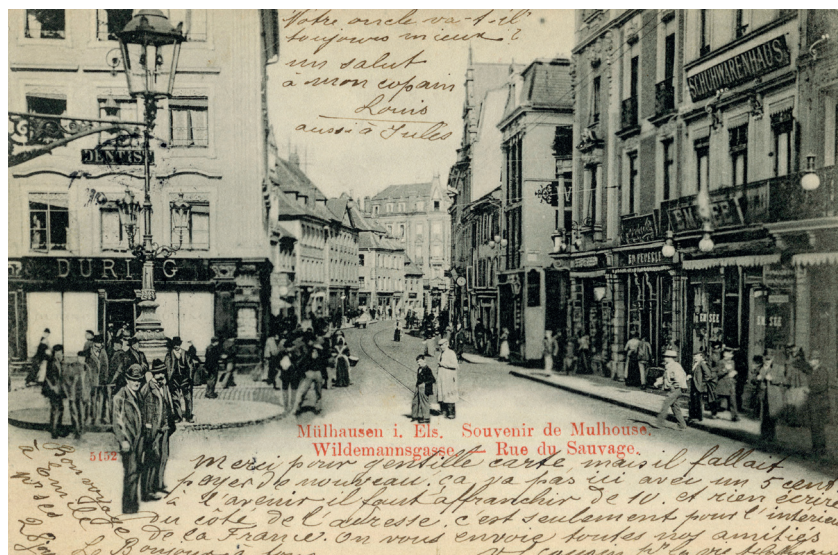 Notre oncle va-t-il
toujours mieux ?
un salut
à mon copain
Louis
aussi à Jules
SCHUHWARENHAUS
DENTIST
DURING
Mülhausen i. Els. Souvenir de Mulhouse.
Wildemannsgasse — Rue du Sauvage.
5152
Bon voyage
à Emile
merci pour gentille carte, mais il fallait
payer de nouveau, ça va pas ici avec un 5 cent
à l'avenir il faut affranchir de 10. et rien écrire
du côté de l'adresse, c'est seulement pour l'intérieur
de la France. On vous envoie toutes nos amitiés
Le Bonjour à tous